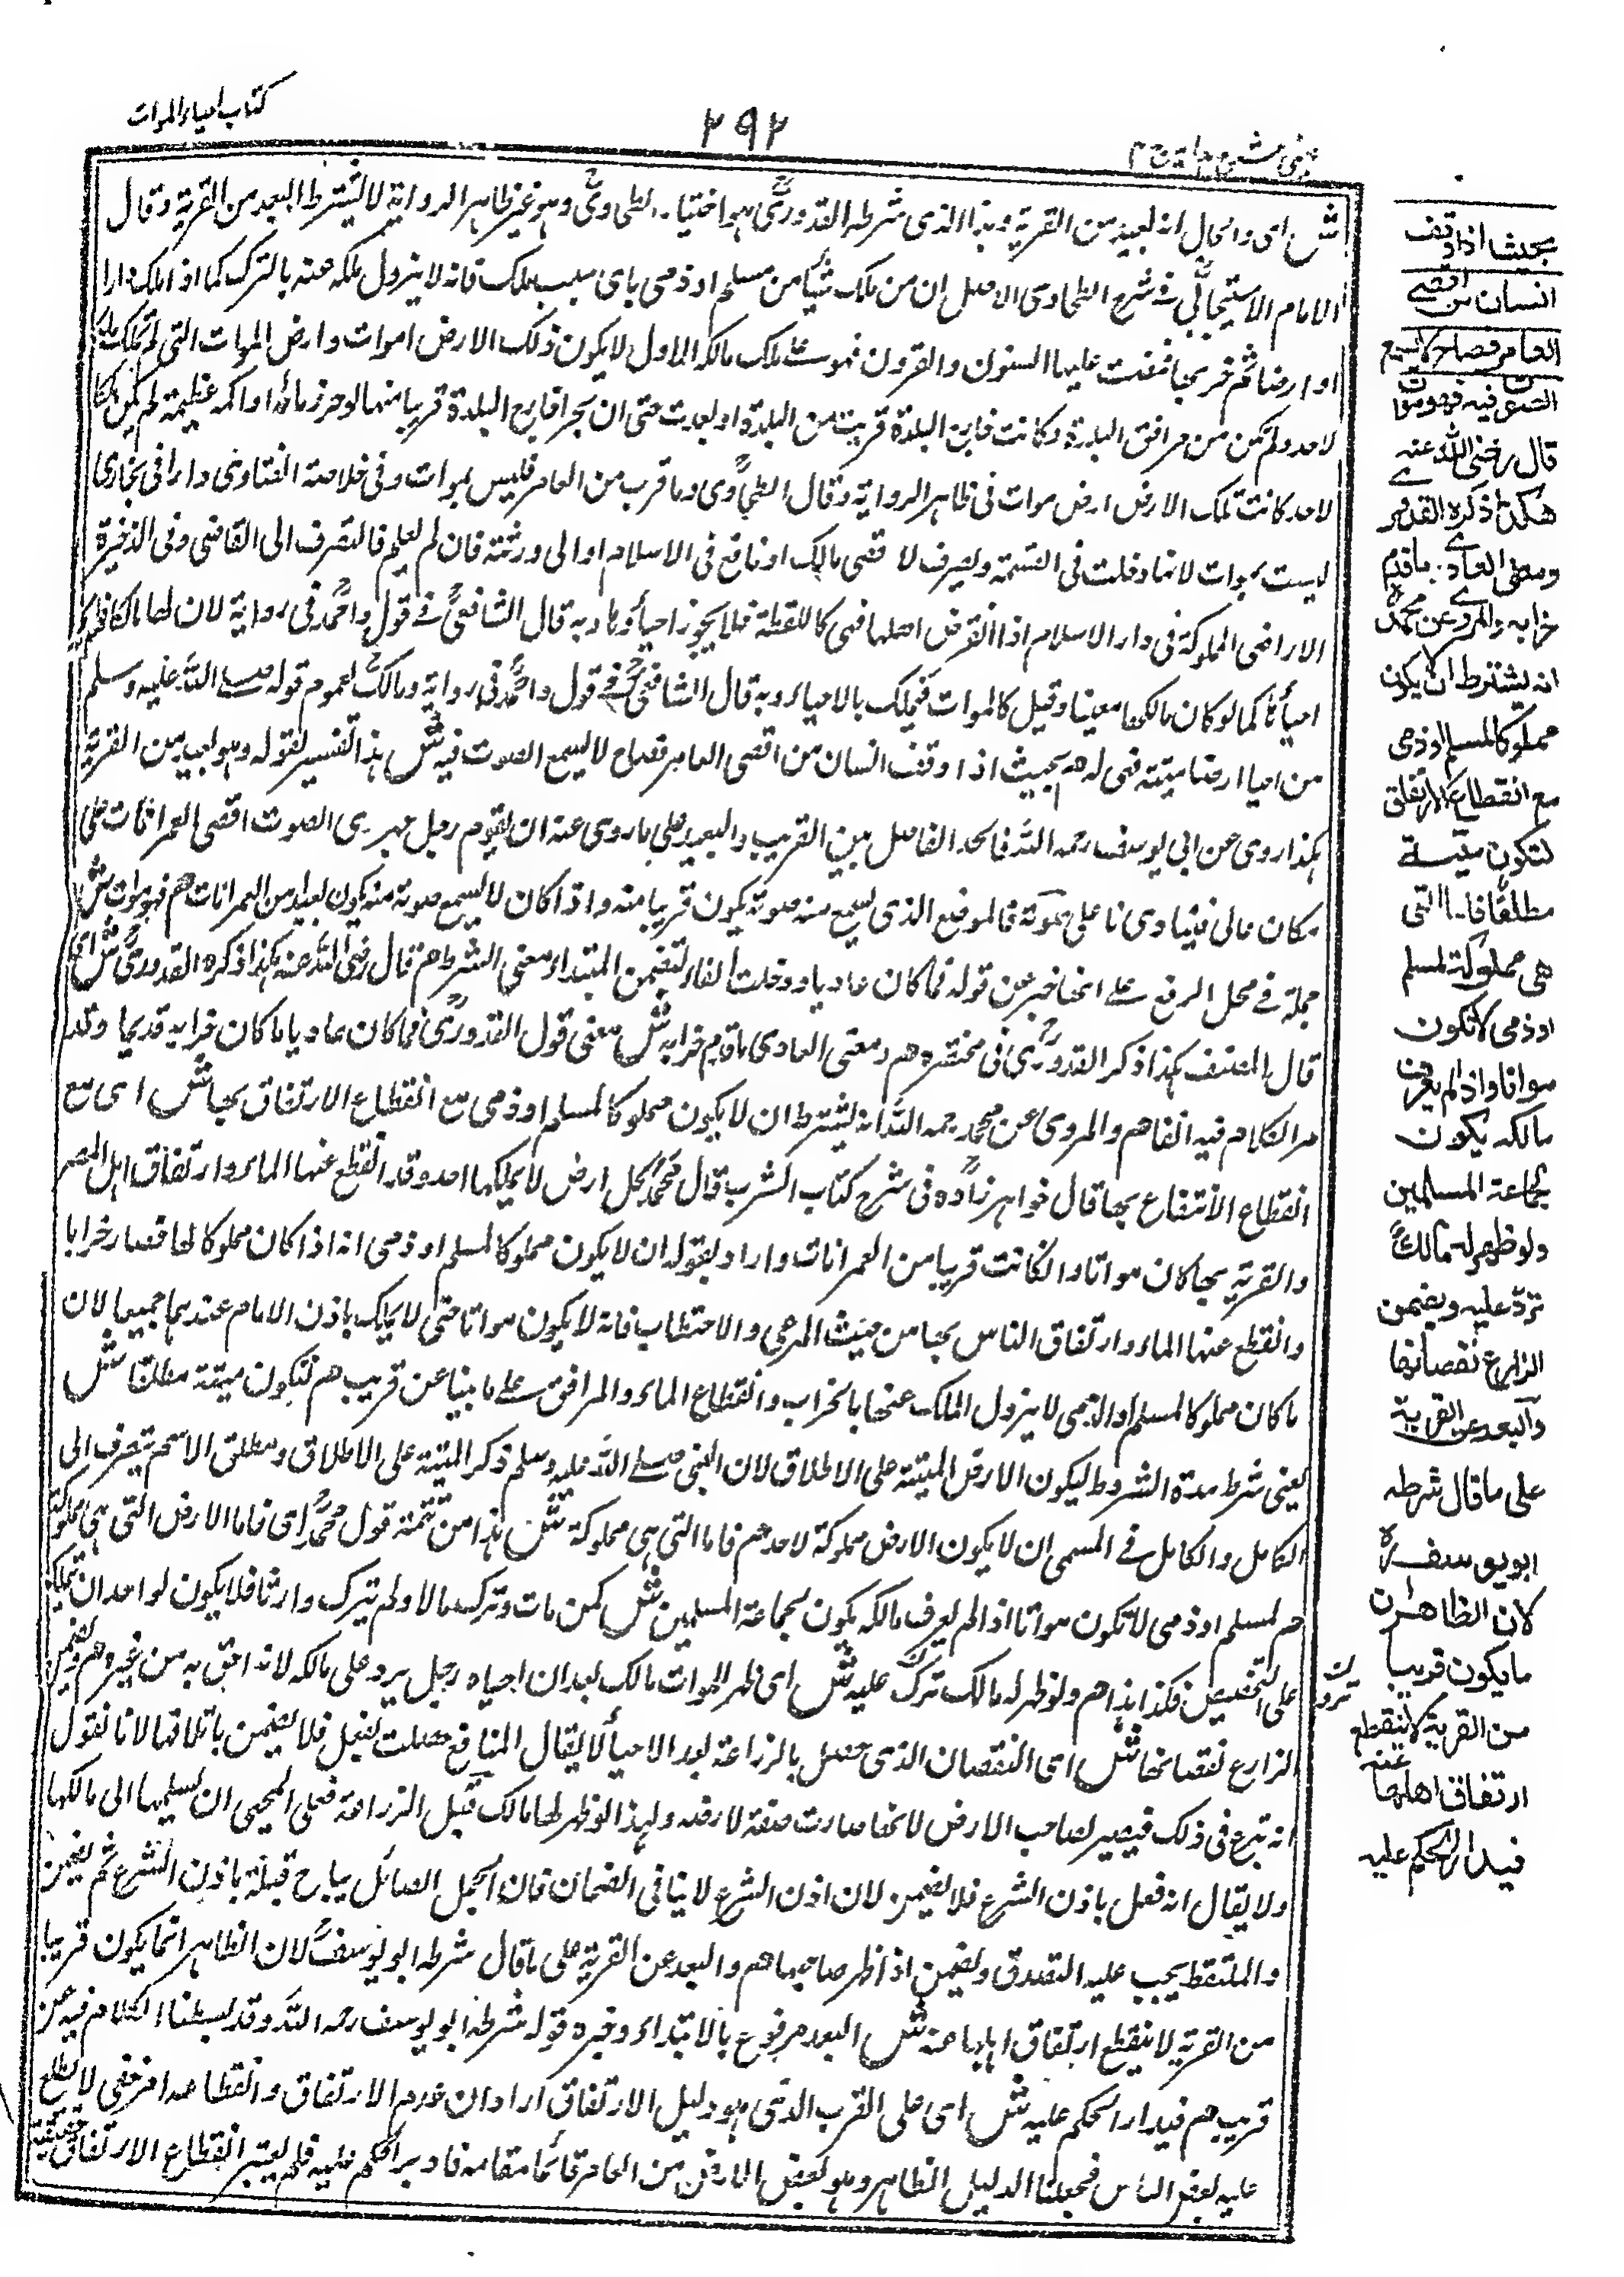 كتاب احياء الموات
٢٩٢
ش اى والحال انه بعيد من القرية وهذا الذى شرطه القدورى هو اختيار الطحاوى وهو غير ظاهر الرواية لا يشترط البعد من القرية وقال
الامام الاسبيجابى فى شرح الطحاوى الاصل ان من ملك شيئا من مسلم او ذمى باى سبب ملك فانه لا يزول ملكه عنه بالترك كما اذا ملك دارا
او ارضا ثم خربها فمضت عليها السنون والقرون فهو على ملك مالكه الاول لا يكون ذلك الارض اموات وارض الموات التى لم تملك ملكا
لاحد ولم تكن من مرافق البلدة وكانت خارج البلدة قريبت من البلدة او بعدت حتى ان بحرا قارب البلدة قريبا منها لو جزر ماؤه او اكمة عظيمة لم يكن ملكا
لاحد كانت تلك الارض ارض موات فى ظاهر الرواية وقال الطحاوى وما قرب من العامر فليس بموات وفى خلاصة الفتاوى دارا فى بخارى
ليست بموات لانها دخلت فى القسمة ويصرف لا قصى مالك او نافع فى الاسلام او الى ورثته فان لم يعلم فالتصرف الى القاضى وفى الذخيرة
الاراضى المملوكة فى دار الاسلام اذا انقرض اهلها فهى كاللقطة فلا يجوز احياؤها وبه قال الشافعى فى قول واحمد فى رواية لان لها مالكا فلا يجوز
احياؤها كما لو كان مالكها معينا وقيل كالموات فيملك بالاحياء وبه قال الشافعى فى قول واحمد فى رواية ومالك لعموم قوله صلى الله عليه وسلم
من احيا ارضا ميتة فهى له هم بحيث اذا وقف انسان من اقصى العامر فصاح لا يسمع الصوت فيه ش هذا تفسير لقوله وهو بعيد من القرية
هكذا روى عن ابى يوسف رحمه الله فالحد الفاصل بين القريب والبعيد على ما روى عنه ان يقوم رجل جهورى الصوت اقصى العمرانات على
مكان عالى فينادى باعلى صوته فالموضع الذى يسمع منه صوته يكون قريبا منه واذا كان لا يسمع صوته منه يكون بعيدا من العمرانات هم فهو موات ش
جملة فى محل الرفع على انها خبر عن قوله فما كان عاديا ودخلت الفاء لتضمن المبتدأ معنى الشرط هم قال رضى الله عنه هكذا ذكره القدورى ش اى
قال المصنف هكذا ذكر القدورى فى مختصره هم ومعنى العادى ما قدم خرابه ش معنى قول القدورى فما كان عاديا ما كان خرابه قديما وقد
مر الكلام فيه انفا هم والمروى عن محمد رحمه الله انه يشترط ان لا يكون مملوكا لمسلم او ذمى مع انقطاع الارتفاق بها ش اى مع
انقطاع الانتفاع بها قال خواهر زاده فى شرح كتاب الشرب قال محمد كل ارض لا يملكها احد وقد انقطع عنها الماء وارتفاق اهل المصر
والقرية بها كان مواتا وان كانت قريبا من العمرانات واراد بقوله ان لا يكون مملوكا لمسلم او ذمى انه اذا كان مملوكا لها فصار خرابا
وانقطع عنها الماء وارتفاق الناس بها من حيث المرعى والاحتطاب فانه لا يكون مواتا حتى لا يملك باذن الامام عندهما جميعا لان
ما كان مملوكا لمسلم او الذمى لا يزول الملك عنها بالخراب وانقطاع الماء والمرافق على ما بينا عن قريب هم لتكون ميتة مطلقا ش
يعنى شرط هذه الشروط ليكون الارض الميتة على الاطلاق لان النبى صلى الله عليه وسلم ذكر الميتة على الاطلاق ومطلق الاسم يتصرف الى
الكامل والكامل فى المسمى ان لا يكون الارض مملوكة لاحد هم فاما التى هى مملوكة ش هذا من تتمة قول محمد اى فاما الارض التى هى مملوكة
هم لمسلم او ذمى لا تكون مواتا اذا لم يعرف مالكه يكون لجماعة المسلمين ش كمن مات وترك مالا ولم يترك وارثا فلا يكون لواحد ان يتملكه
على التخصيص فكذا هذا هم ولو ظهر له مالك ترد عليه ش اى ظهر للموات مالك بعد ان احياه رجل يرد على مالكه لانه احق به من غيره هم ويضمن
الزارع نقصانها ش اى النقصان الذى حصل بالزراعة بعد الاحياء لا يقال المنافع حصلت بفعله فلا يضمن باتلافها لانا نقول
انه تبرع فى ذلك فيصير لصاحب الارض لانها صارت صفة لارضه ولهذا لو ظهر لها مالك قبل الزراعة فعلى المحيى ان يسلمها الى مالكها
ولا يقال انه فعل باذن الشرع فلا يضمن لان اذن الشرع لا ينافى الضمان فان الجمل الصائل يباح قتله باذن الشرع ثم يضمن
والملتقط يجب عليه التصدق ويضمن اذا ظهر صاحبها هم والبعد عن القرية على ما قال شرطه ابو يوسف لان الظاهر انما يكون قريبا
من القرية لا ينقطع ارتفاق اهلها عنه ش البعد مرفوع بالابتداء وخبره قوله شرطه ابو يوسف رحمه الله وقد بسطنا الكلام فيه عن
قريب هم فيدار الحكم عليه ش اى على القرب الذى هو دليل الارتفاق اراد ان عدم الارتفاق وانقطاعه امر خفى لا يطلع
عليه بعض الناس فجعلنا الدليل الظاهر وهو بعض الارض من العامر قائما مقامه فادير الحكم عليه فلم يعتبر انقطاع الارتفاق حقيقة
بحيث اذا وقف
انسان من اقصى
العامر فصاح لا يسمع
الصوت فيه فهو موات
قال رضى الله عنه
هكذا ذكره القدورى
ومعنى العادى ما قدم
خرابه والمروى عن محمد
انه يشترط ان لا يكون
مملوكا لمسلم او ذمى
مع انقطاع الارتفاق
لتكون ميتة
مطلقا فاما التى
هى مملوكة لمسلم
او ذمى لا تكون
مواتا واذا لم يعرف
مالكه يكون
لجماعة المسلمين
ولو ظهر له مالك
تردّ عليه ويضمن
الزارع نقصانها
والبعد عن القرية
على ما قال شرطه
ابو يوسف
لان الظاهر ان
ما يكون قريبا
من القرية لا ينقطع
عنه
ارتفاق اهلها
فيدار الحكم عليه